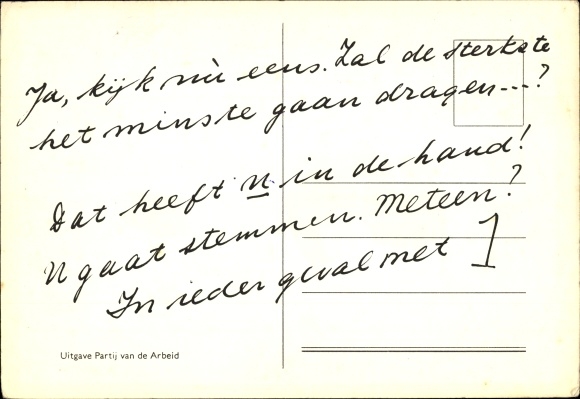 Ja, kijk nù eens. Zal de sterkste
het minste gaan dragen---?
Dat heeft u in de hand!
U gaat stemmen. Meteen?
In ieder geval met 1
Uitgave Partij van de Arbeid